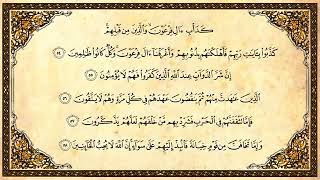 كَدَأْبِ ءَالِ فِرْعَوْنَ وَالَّذِينَ مِن قَبْلِهِمْ
كَذَّبُوا بِـَٔايَـٰتِ رَبِّهِمْ فَأَهْلَكْنَـٰهُم بِذُنُوبِهِمْ وَأَغْرَقْنَا ءَالَ فِرْعَوْنَ وَكُلٌّ كَانُوا ظَـٰلِمِينَ ٥٤
إِنَّ شَرَّ الدَّوَابِّ عِندَ اللَّهِ الَّذِينَ كَفَرُوا فَهُمْ لَا يُؤْمِنُونَ ٥٥
الَّذِينَ عَـٰهَدتَّ مِنْهُمْ ثُمَّ يَنقُضُونَ عَهْدَهُمْ فِي كُلِّ مَرَّةٍ وَهُمْ لَا يَتَّقُونَ ٥٦
فَإِمَّا تَثْقَفَنَّهُمْ فِي الْحَرْبِ فَشَرِّدْ بِهِم مَّنْ خَلْفَهُمْ لَعَلَّهُمْ يَذَّكَّرُونَ ٥٧
وَإِمَّا تَخَافَنَّ مِن قَوْمٍ خِيَانَةً فَانبِذْ إِلَيْهِمْ عَلَىٰ سَوَاءٍ إِنَّ اللَّهَ لَا يُحِبُّ الْخَائِنِينَ ٥٨